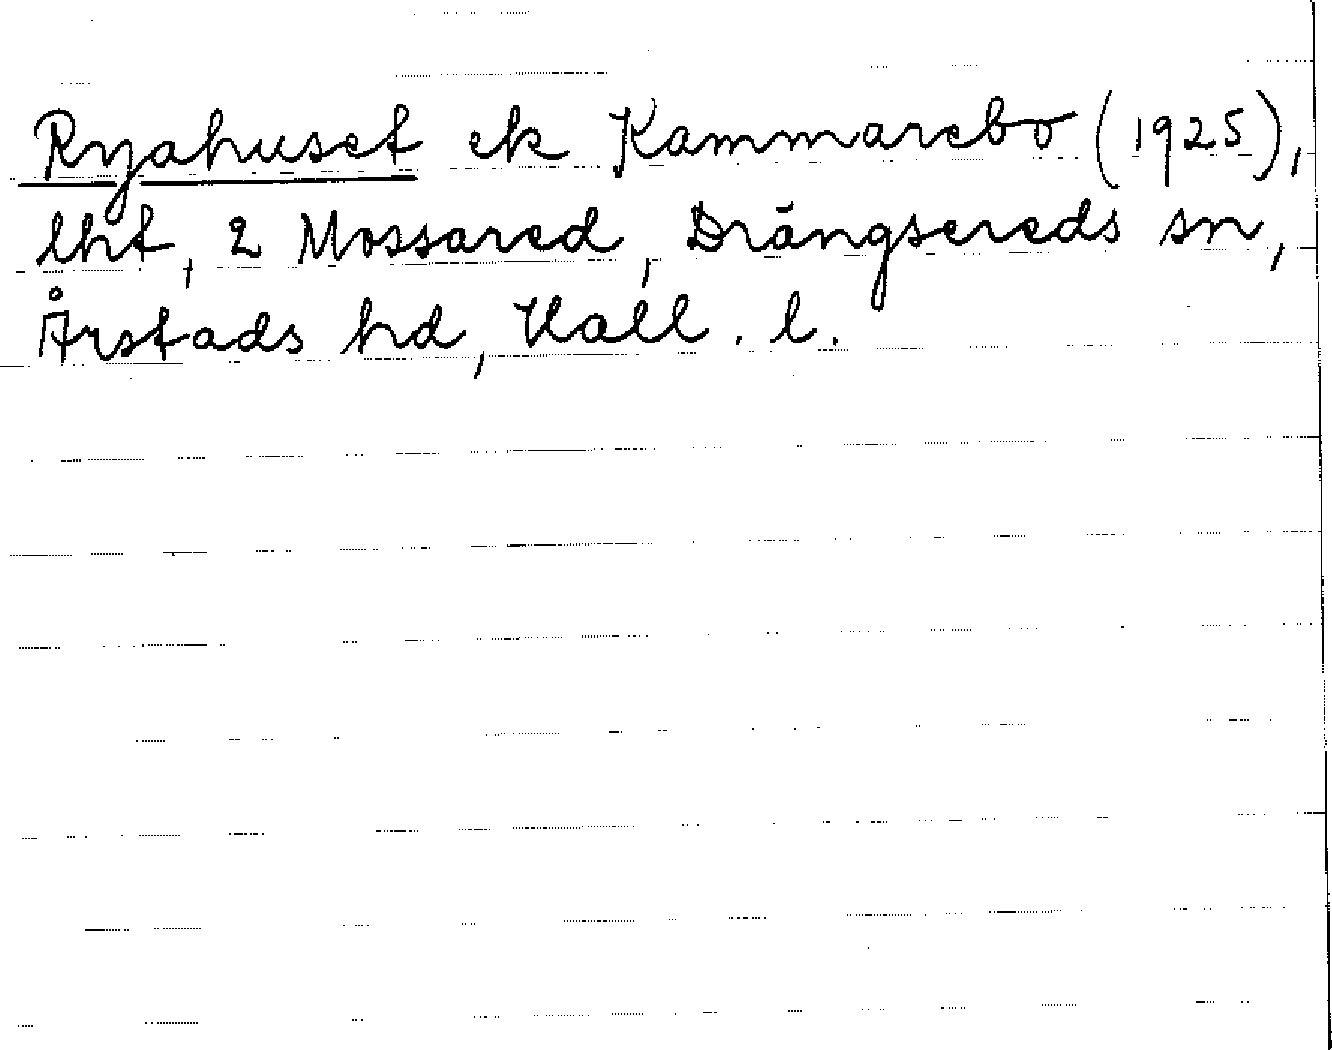 Ryahuset ek Kammarebo (1925),
lht, 2 Mossared, Drängsereds sn,
Årstads hd, Hall. l.